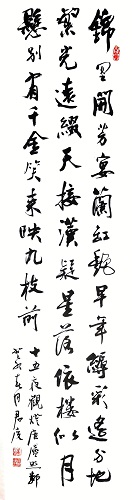 錦里開芳宴蘭紅艷早年縟彩遙分地
繁光遠綴天接漢疑星落依樓似月
懸別有千金笑來映九枝前
十五夜觀燈唐盧照鄰